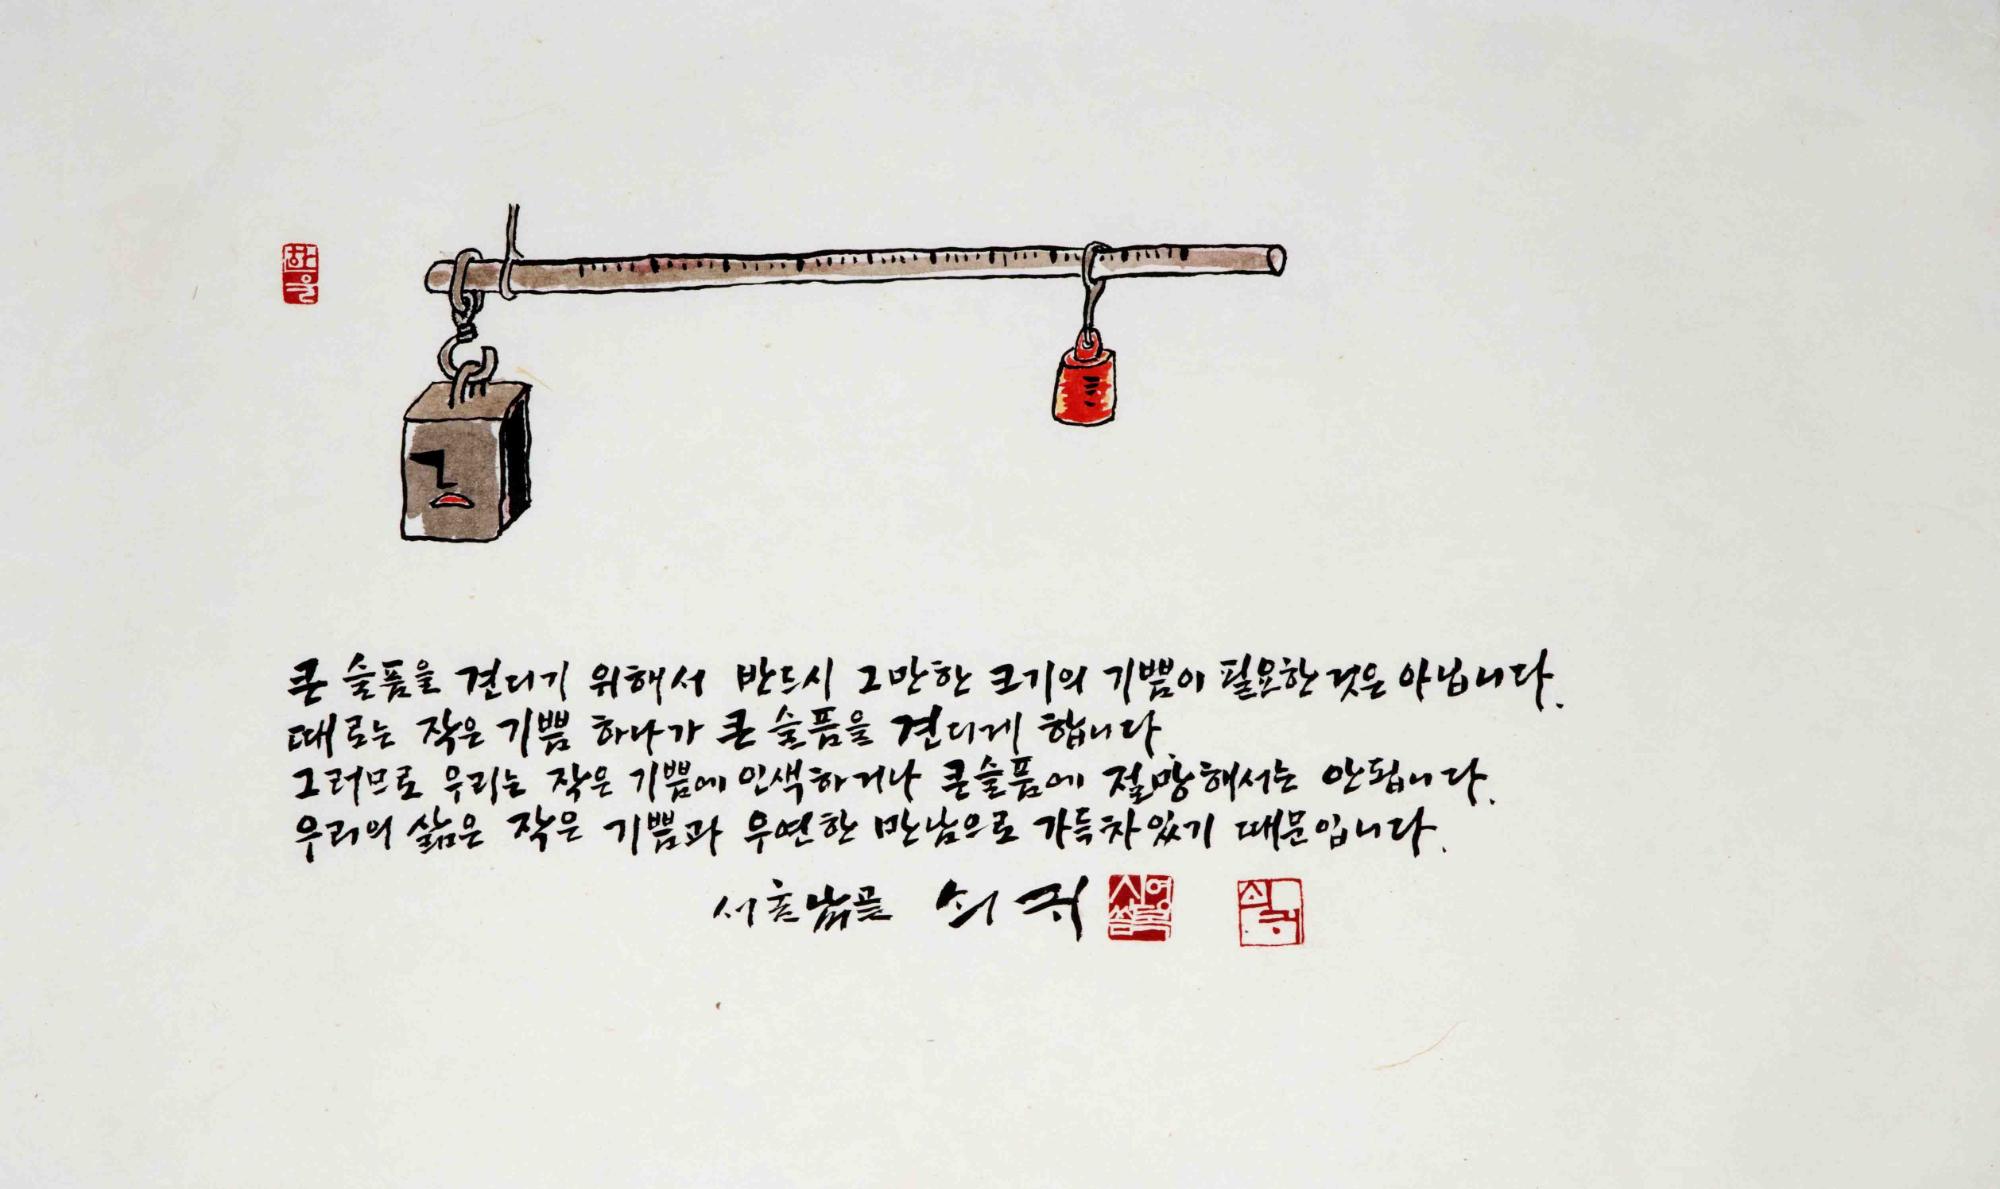 큰 슬픔을 견디기 위해서 반드시 그만한 크기의 기쁨이 필요한 것은 아닙니다.
때로는 작은 기쁨 하나가 큰 슬픔을 견디게 합니다.
그러므로 우리는 작은 기쁨에 인색하거나 큰슬픔에 절망해서는 안됩니다.
우리의 삶은 작은 기쁨과 우연한 만남으로 가득차있기 때문입니다.
쇠귀 신영복씀 쇠귀